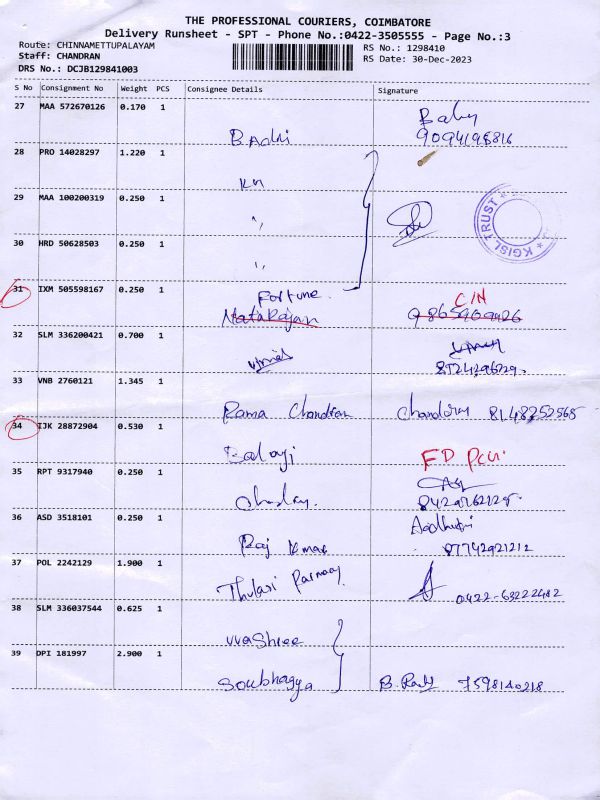 THE PROFESSIONAL COURIERS, COIMBATORE
Delivery Runsheet - SPT - Phone No.:0422-3505555 - Page No.:3
Route: CHINNAMETTUPALAYAM
RS No.: 1298410
Staff: CHANDRAN
RS Date: 30-Dec-2023
DRS No.: DCJB129841003
S No Consignment No Weight PCS Consignee Details Signature
27 MAA 572670126 0.170 1
Baby
B.Adhi 9094198816
28 PRO 14028297 1.220 1
KH
29 MAA 100200319 0.250 1
"
KGISL TRUST
30 HRD 50628503 0.250 1
"
31 IXM 505598167 0.250 1
Fortune C/N
Natarajan 9865909426
32 SLM 336200421 0.700 1
8724296229
33 VNB 2760121 1.345 1
Rama Chandran 8148252565
34 IJK 28872904 0.530 1
Balaji FD
35 RPT 9317940 0.250 1
36 ASD 3518101 0.250 1
Raj Kmar 87742921212
37 POL 2242129 1.900 1
Thulasi 0422-63222482
38 SLM 336037544 0.625 1
VVaShree
39 DPI 181997 2.900 1
Soubhagya 7598140218